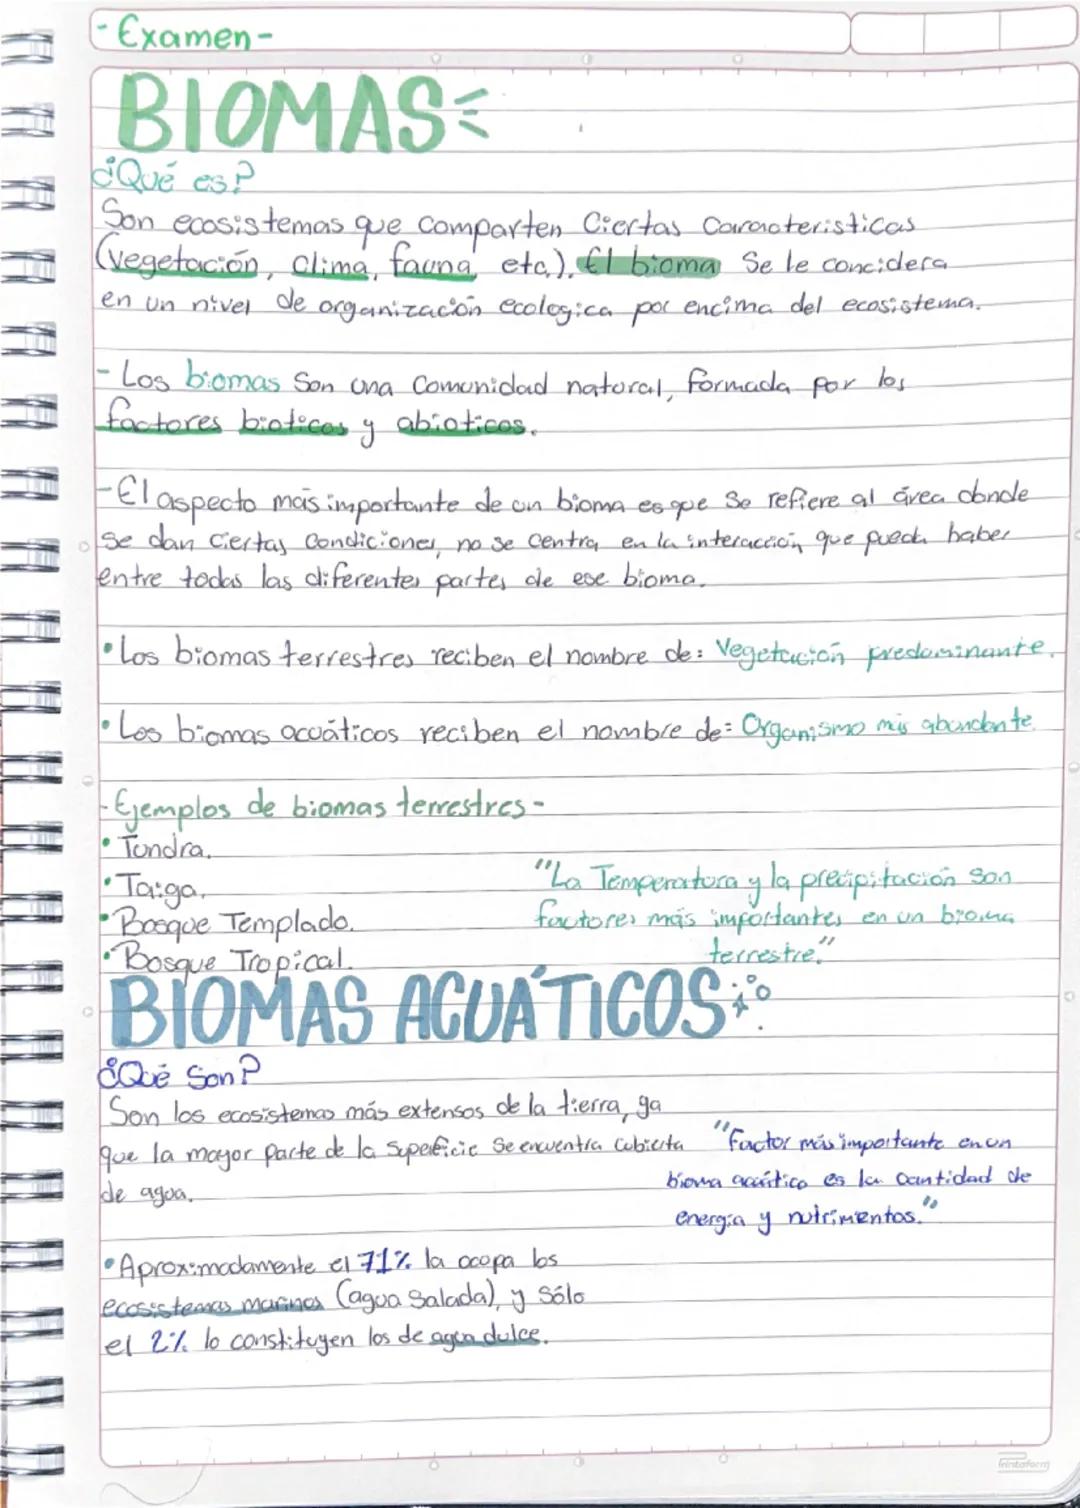 - Examen -
BIOMAS
¿Qué es?
Son ecosistemas que comparten Ciertas Caracteristicas
(vegetación, Clima, fauna, etc.). El bioma Se le concidera
en un nivel de organización ecologica por encima del ecosistema.
- Los biomas Son una Comunidad natural, formada por los
factores bioticos y abioticos.
- El aspecto más importante de un bioma es que Se refiere al área donde
se dan Ciertas Condiciones, no se Centra en la interacción que pueda haber
entre todas las diferentes partes de ese bioma.
• Los biomas terrestres reciben el nombre de: Vegetación predominante.
• Los biomas acuáticos reciben el nombre de: Organismo más abundante.
- Ejemplos de biomas terrestres -
• Tundra.
• Taiga.
• Bosque Templado.
• Bosque Tropical.
"La Temperatura y la precipitación Son
factores más importantes en un bioma
terrestre."
BIOMAS ACUÁTICOS
¿Qué Son?
Son los ecosistemas más extensos de la tierra, ya
que la mayor parte de la Superficie Se encuentra Cubierta
de agua.
"Factor más importante en un
bioma acuático es la Cantidad de
energía y nutrimentos."
• Aproximadamente el 71% la ocupa los
ecosistemas marinos (agua Salada), y Sólo
el 2% lo constituyen los de agua dulce.
Printaform